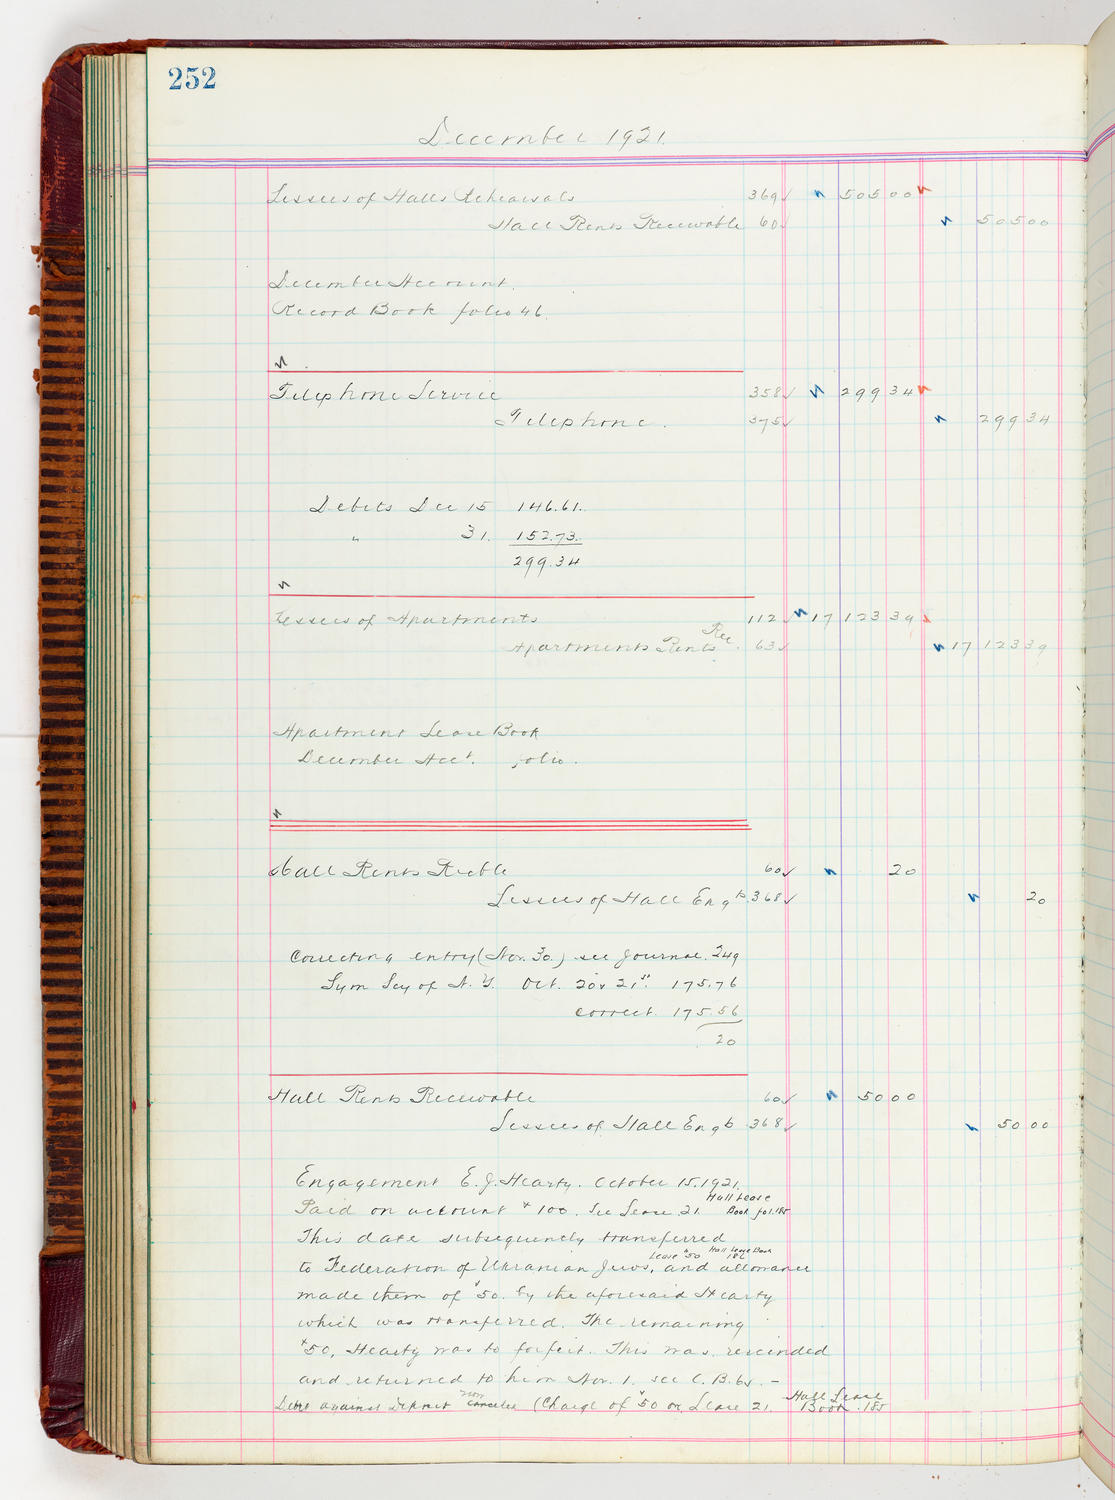 252
December 1921.
Lessees of Halls Rehearsals 369 ✓ 505 00
Hall Rents Receivable 60 ✓ 505 00
December Account.
Record Book folio 46.
Telephone Service 358 ✓ 299 34
Telephone. 375 ✓ 299 34
Debits Dec 15 146.61.
" 31. 152.73.
299.34
Lessees of Apartments 112 ✓ 17 123 39
Apartments Rents Rec. 63 ✓ 17 123 39
Apartment Lease Book
December Acct. folio.
Hall Rents Rcble 60 ✓ 20
Lessees of Hall Engts. 368 ✓ 20
Correcting entry (Nov. 30.) see Journal. 249
Sym Scy of N.Y. Oct. 20 & 21st. 175.76
correct. 175.56
20
Hall Rents Receivable 60 ✓ 50 00
Lessees of Hall Engts 368 ✓ 50 00
Engagement E. J. Hearty. October 15. 1921.
Paid on account $100. See Lease 21. Hall Lease Book fol. 185
This date subsequently transferred
to Federation of Ukranian Jews, Lease $50 Hall Lease Book 186 and allowance
made them of $50. by the aforesaid Hearty
which was transferred. The remaining
$50, Hearty was to forfeit. This was rescinded
and returned to him Nov. 1. see C. B. 65. –
against Deposit now cancelled (Charge of $50 on Lease 21. Hall Lease Book. 185